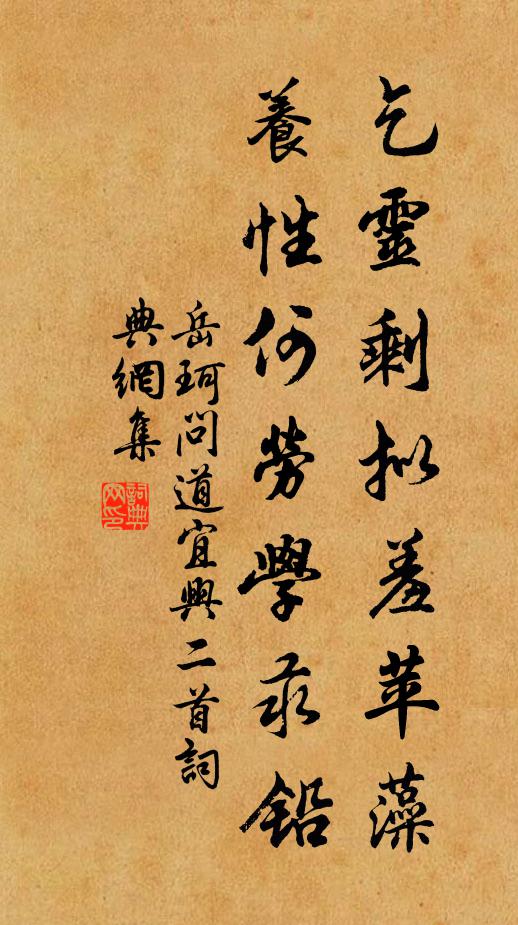 乞靈剩拟羞苹藻
養性何勞學汞鉛
岳珂問道宜興二首詞
典網集
詞典
网印